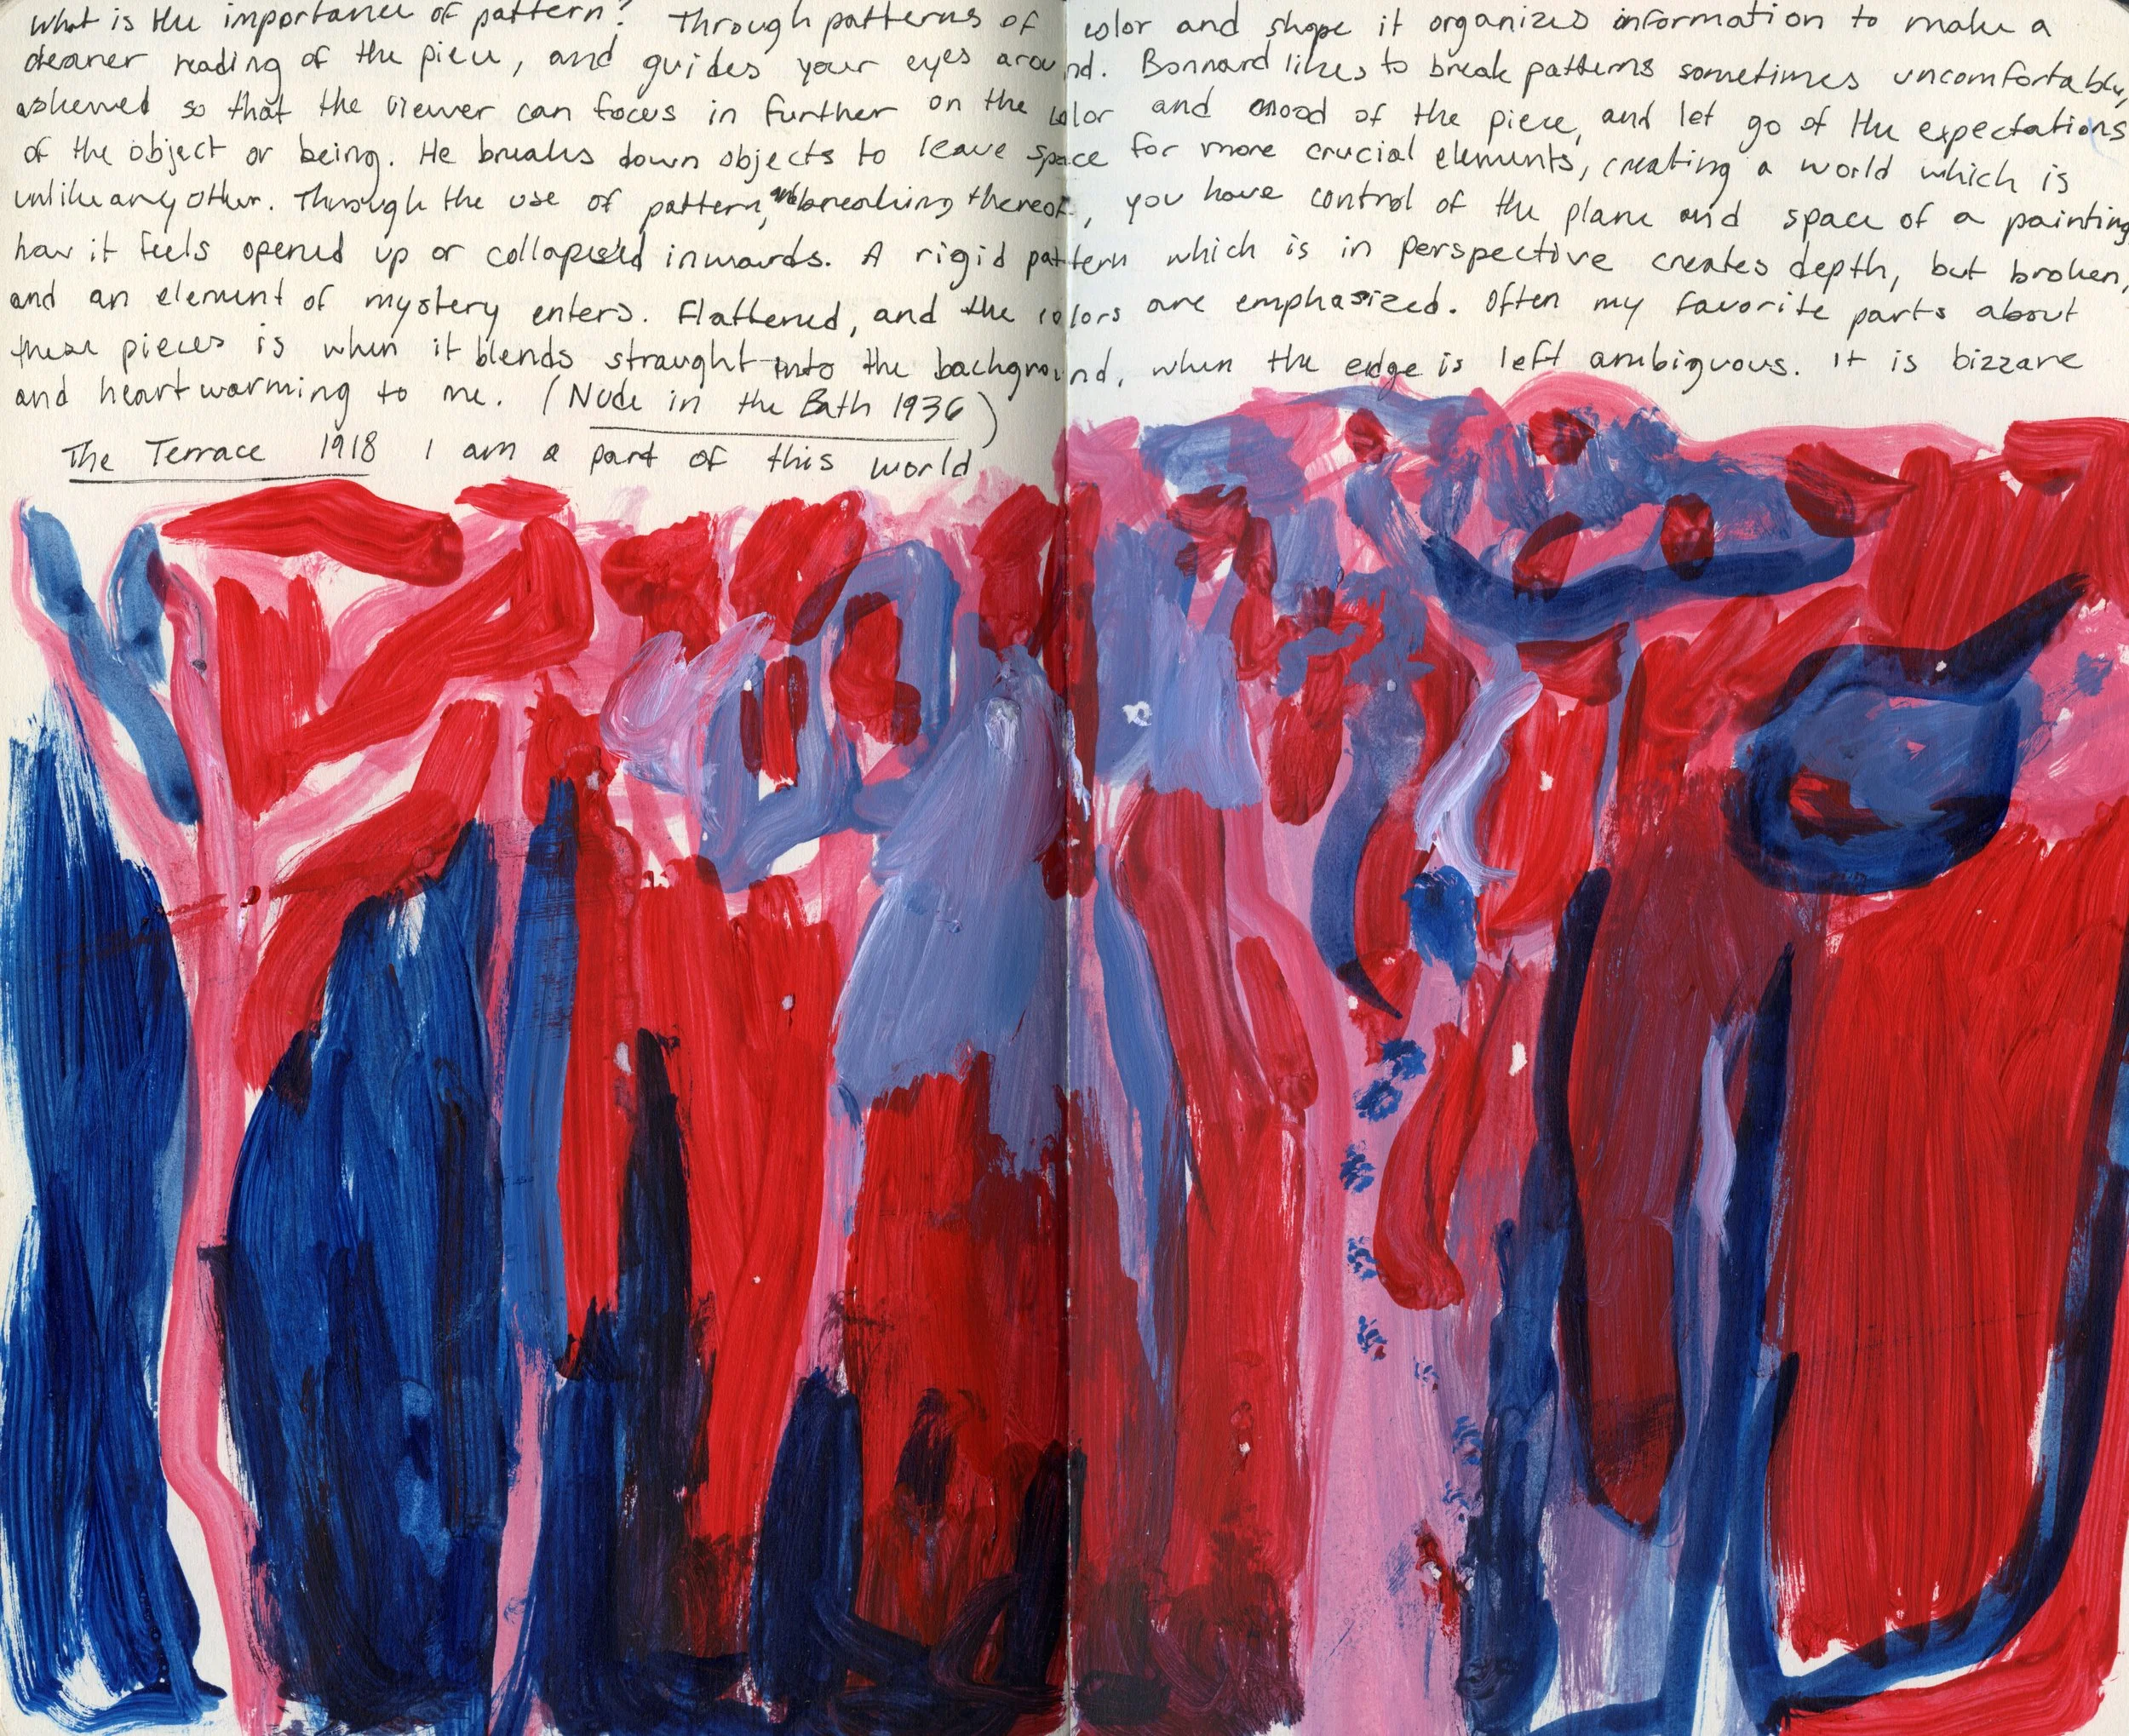 What is the importance of pattern? Through patterns of color and shape it organizes information to make a
cleaner reading of the piece, and guides your eyes around. Bonnard likes to break patterns sometimes uncomfortably,
askewed so that the viewer can focus in further on the color and mood of the piece, and let go of the expectations
of the object or being. He breaks down objects to leave space for more crucial elements, creating a world which is
unlike any other. Through the use of pattern, and breaking thereof, you have control of the plane and space of a painting
how it feels opened up or collapsed inwards. A rigid pattern which is in perspective creates depth, but broken,
and an element of mystery enters. Flattened, and the colors are emphasized. Often my favorite parts about
these pieces is when it blends straught into the background, when the edge is left ambiguous. It is bizzare
and heartwarming to me. (Nude in the Bath 1936)
The Terrace 1918 I am a part of this world